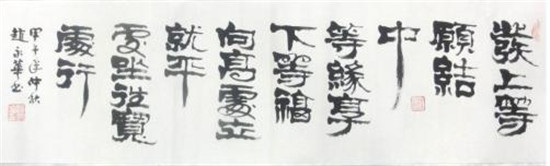 發上等
願結
中
等緣享
下等福
向高處立
就平
處坐往寬
處行
甲午年仲秋
趙永華書